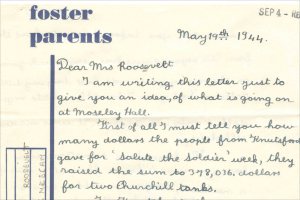 foster
parents
SEP 4 - RE
May 19th 1944.
Dear Mrs Roosevelt
I am writing this letter just to
give you an idea, of what is going on
at Moseley Hall.
First of all I must tell you how
many dollars the people from Knutsford
gave for "Salute the soldier" week, they
raised the sum to 378,036. dollars
for two Churchill tanks.